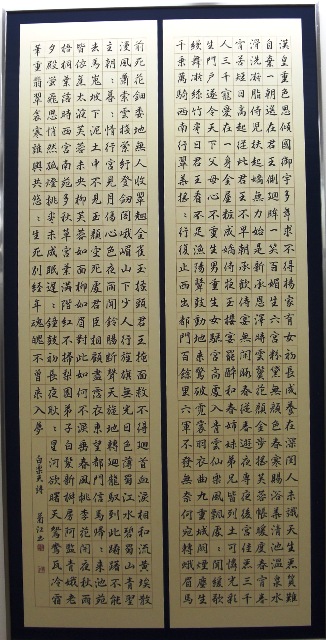 漢皇重色思傾國御宇多年求不得楊家有女初長成養在深閨人未識天生麗質難
自棄一朝選在君王側迴眸一笑百媚生六宮粉黛無顏色春寒賜浴華清池溫泉水
滑洗凝脂侍兒扶起嬌無力始是新承恩澤時雲鬢花顏金步搖芙蓉帳暖度春宵春
宵苦短日高起從此君王不早朝承歡侍宴無閒暇春從春遊夜專夜後宮佳麗三千
人三千寵愛在一身金屋粧成嬌侍夜玉樓宴罷醉和春姊妹弟兄皆列土可憐光彩
生門戶遂令天下父母心不重生男重生女驪宮高處入青雲仙樂風飄處〻聞緩歌
縵舞凝絲竹盡日君王看不足漁陽鼙鼓動地來驚破霓裳羽衣曲九重城闕煙塵生
千乘萬騎西南行翠華搖〻行復止西出都門百餘里六軍不發無奈何宛轉蛾眉馬
前死花鈿委地無人收翠翹金雀玉搔頭君王掩面救不得迴首血淚相和流黃埃散
漫風蕭索雲棧縈紆登劍閣峨嵋山下少人行旌旗無光日色薄蜀江水碧蜀山青聖
主朝〻暮〻情行宮見月傷心色夜雨聞鈴腸斷聲天旋地轉迴龍馭到此躊躇不能
去馬嵬坡下泥土中不見玉顏空死處君臣相顧盡霑衣東望都門信馬歸〻來池苑
皆依舊太液芙蓉未央柳芙蓉如面柳如眉對此如何不淚垂春風桃李花開夜秋雨
梧桐葉落時西宮南苑多秋草宮葉滿階紅不掃梨園弟子白髮新椒房阿監青娥老
夕殿螢飛思悄然孤燈挑盡未成眠遲〻鐘鼓初長夜耿〻星河欲曙天鴛鴦瓦冷霜
華重翡翠衾寒誰與共悠〻生死別經年魂魄不曾來入夢
白樂天詩